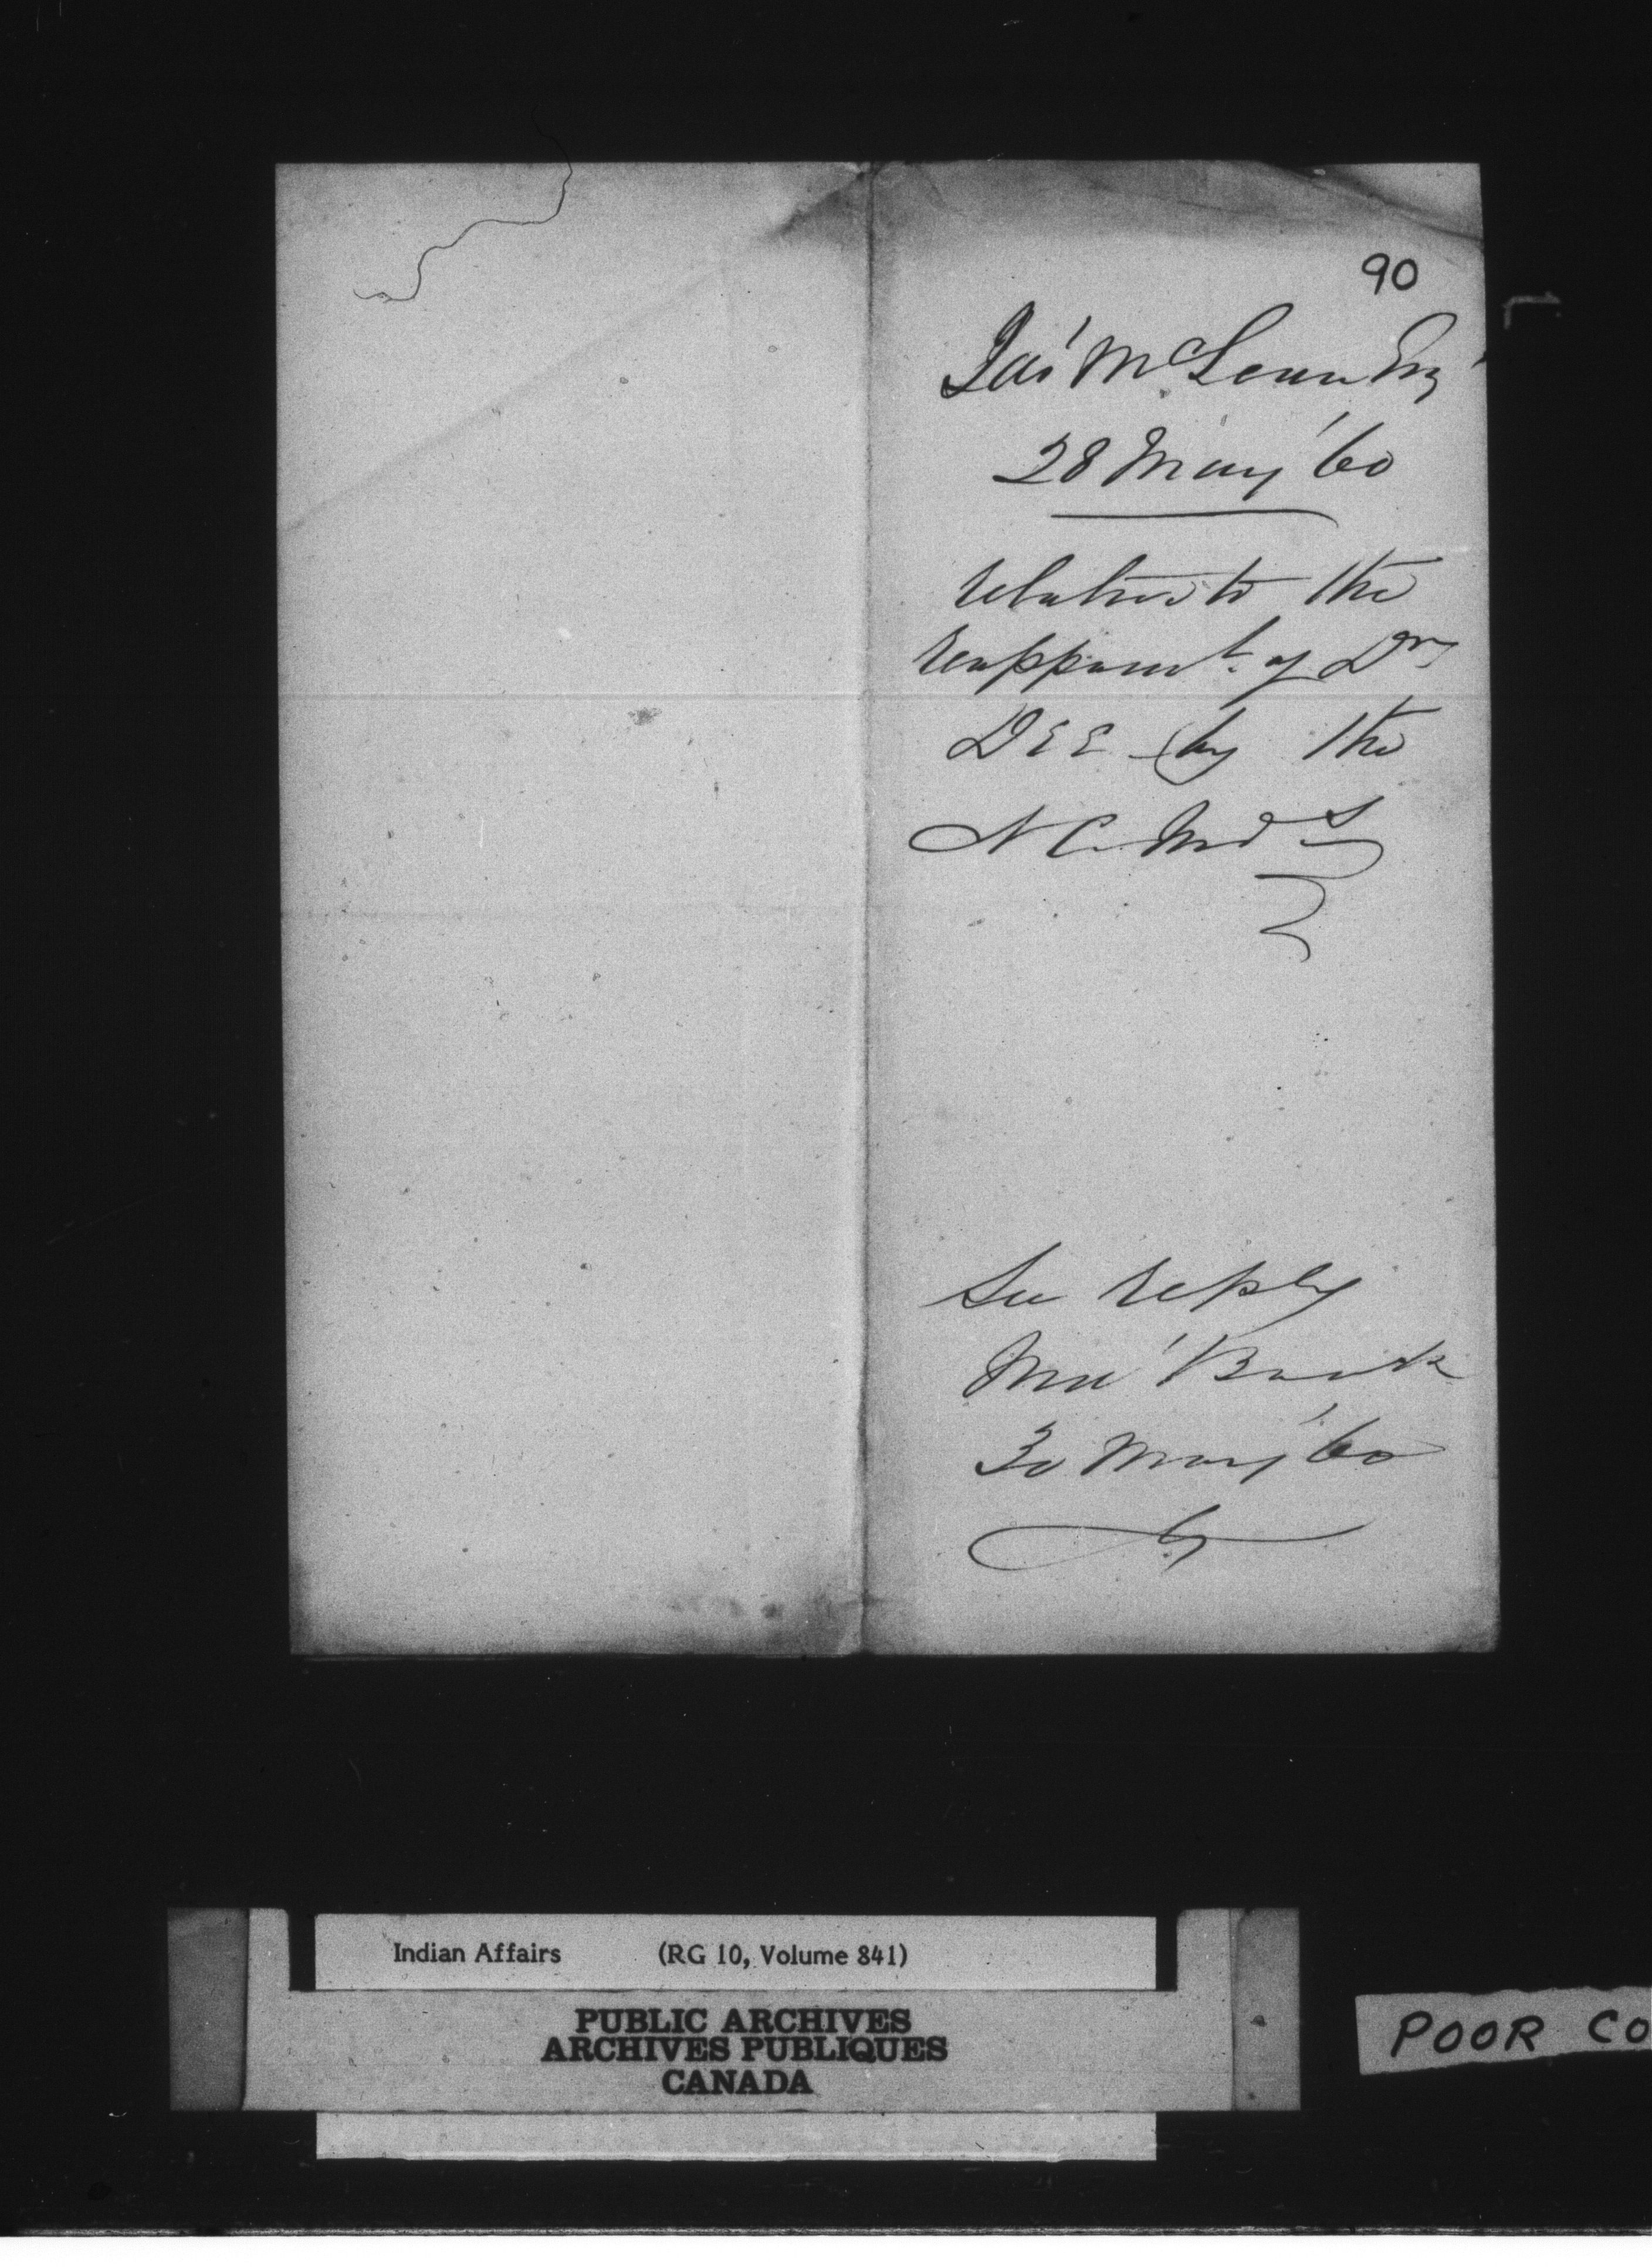 90
Jas' McLean Esq'
28 May '60
relative to the
reappmt. of Dr
DEE by the
N C
See reply
30 May '60
Indian Affairs (RG 10, Volume 841)
PUBLIC ARCHIVES
ARCHIVES PUBLIQUES
CANADA
POOR CO